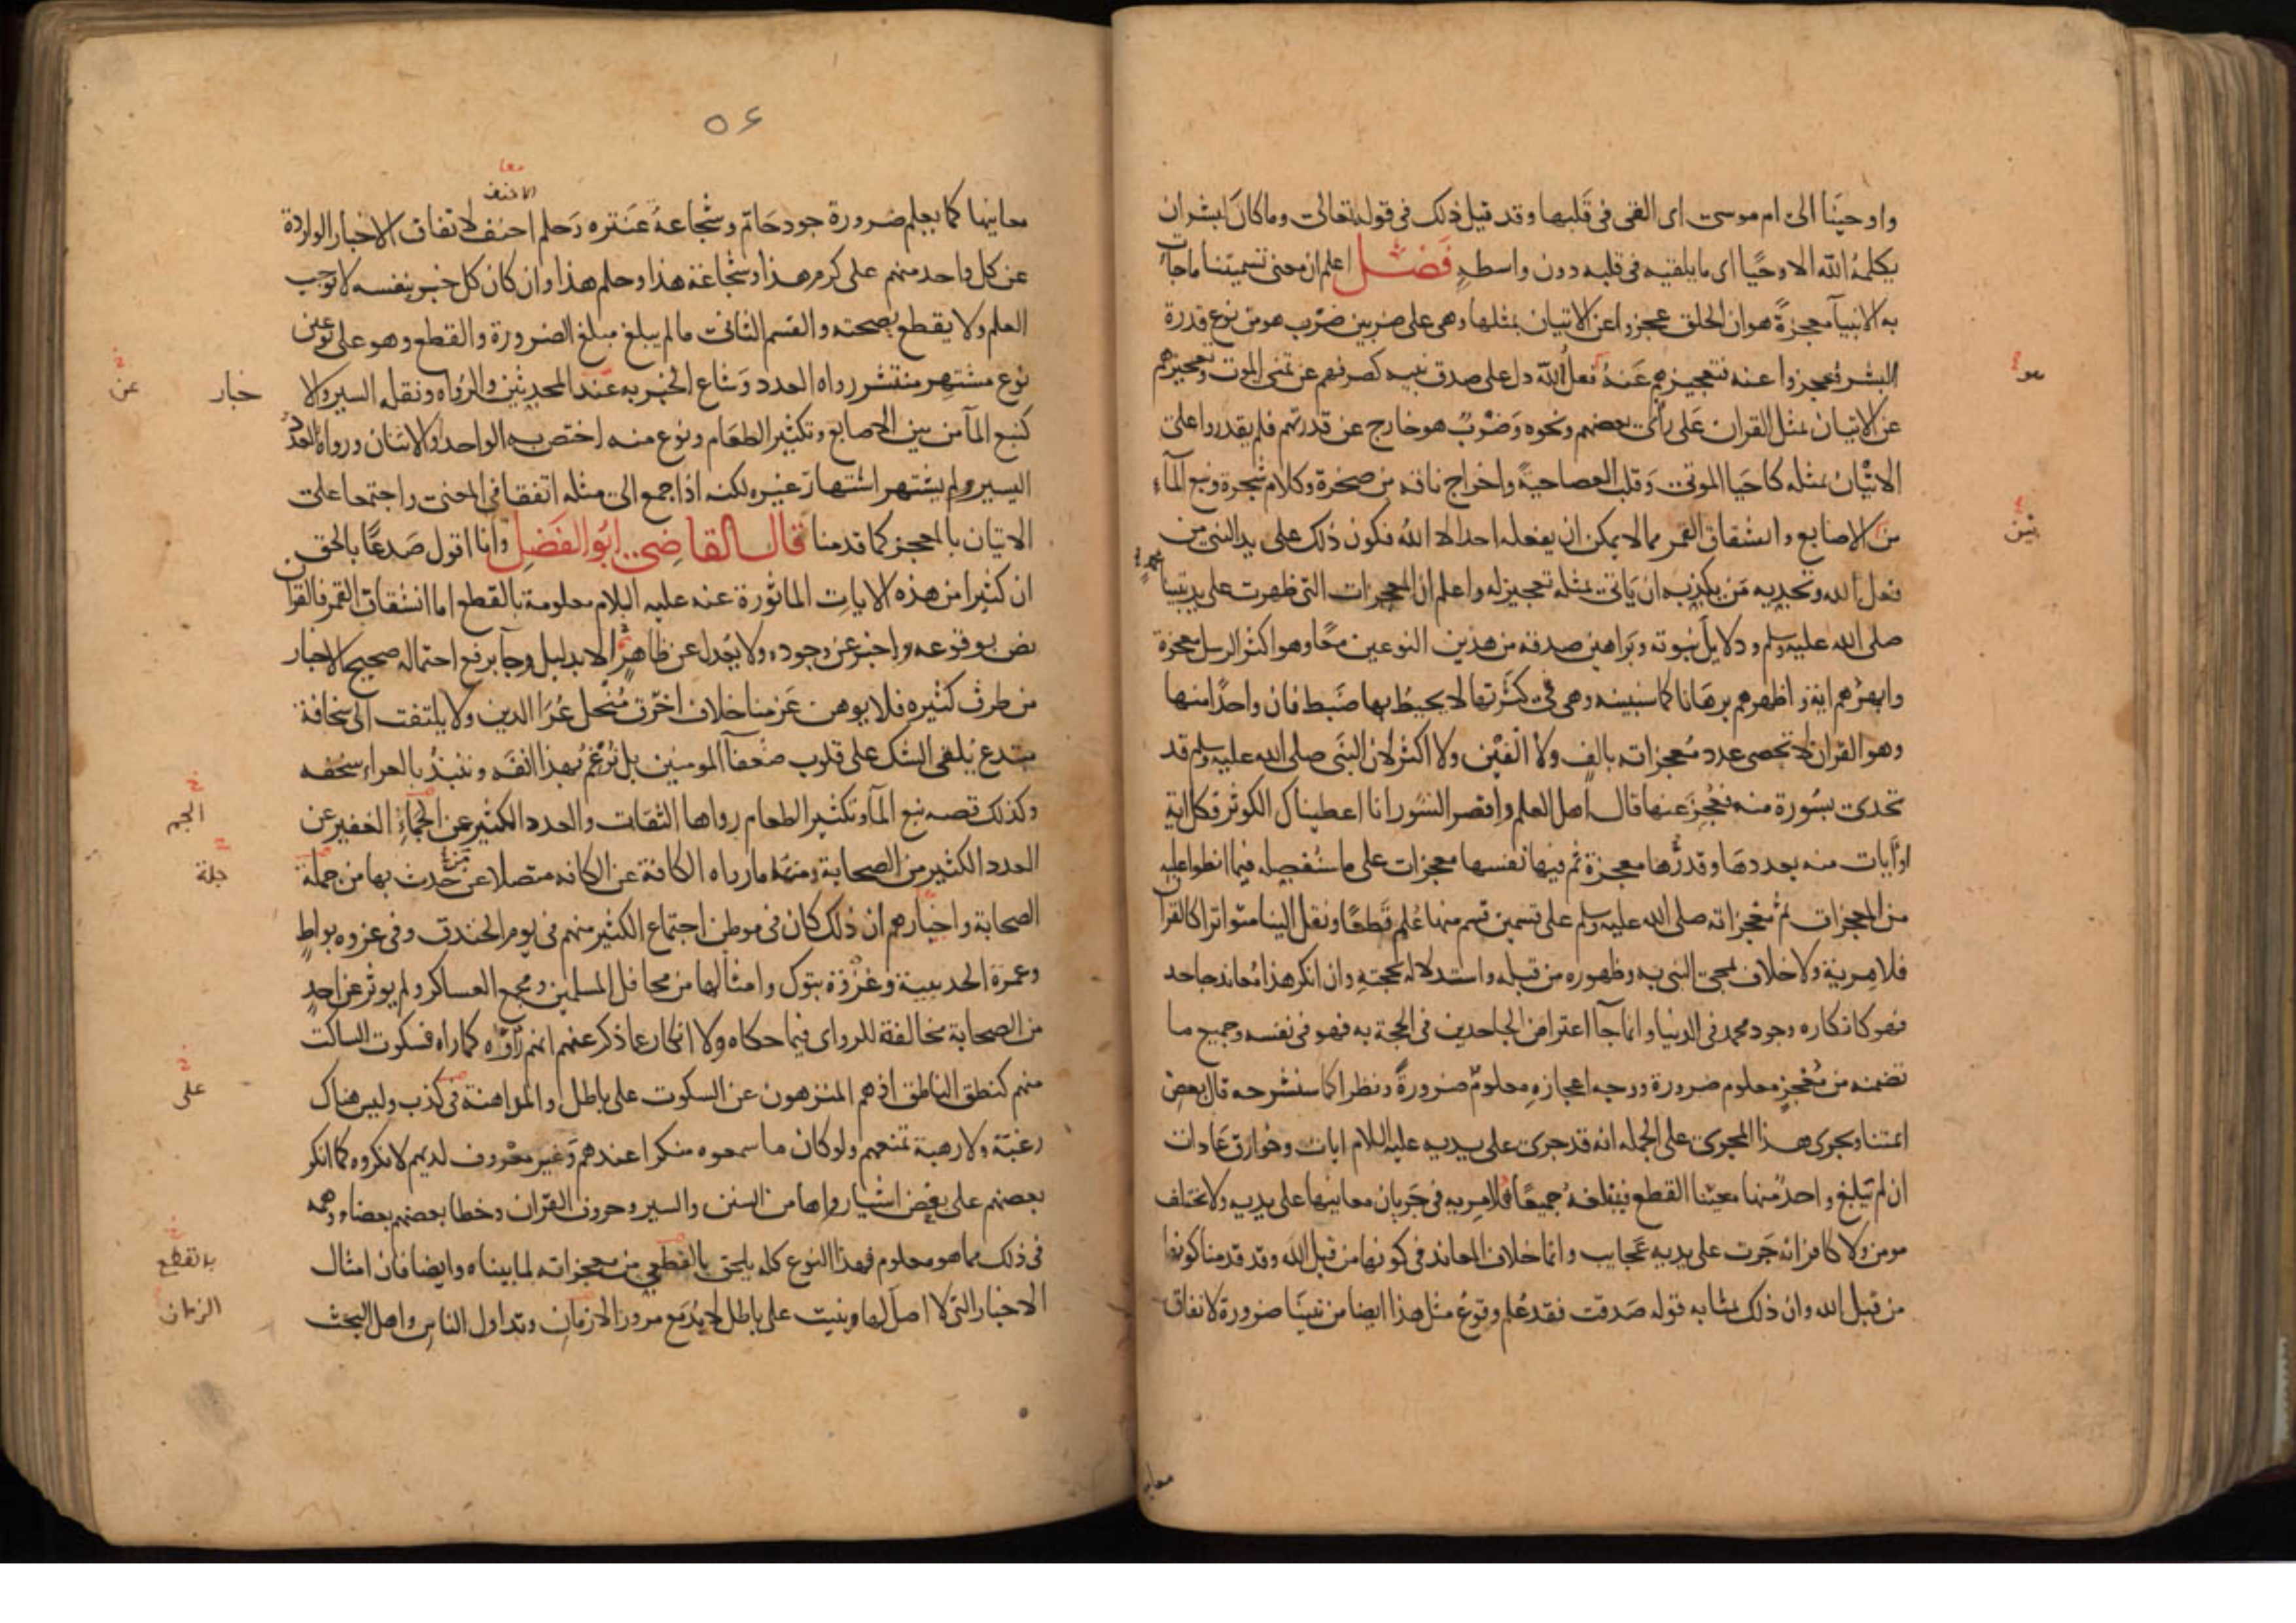 واوحينا الى ام موسى اى القى فى قلبها وقد قيل ذلك فى قوله تعالى وماكان لبشر ان
يكلمه الله الا وحيا اى ما يلقيه فى قلبه دون واسطة فصل اعلم ان معنى تسميتنا ماجات
به الانبيآ معجزة هو ان الخلق عجزوا عن الاتيان بمثلها وهى على ضربين ضرب هو من نوع قدرة
البشر فعجزوا عنه فتعجيزهم عنه فعل الله دل على صدق نبيه كصرفهم عن تمنى الموت وتعجيزهم
هو
عن الاتيان بمثل القران على راى بعضهم ونحوه وضرب هو خارج عن قدرتهم فلم يقدروا على
الاتيان بمثله كاحيا الموتى وقلب العصا حية واخراج ناقه من صخرة وكلام شجرة ونبع المآء
من الاصابع وانشقاق القمر مما لا يمكن ان يفعله احد الا الله فكون ذلك على يد النبى من
فعل الله وتحديه من يكذبه ان ياتى بمثله تعجيز له واعلم ان المعجزات التى ظهرت على يد نبينا
صلى الله عليه وسلم ودلايل نبوته وبراهين صدقه من هذين النوعين معا وهو اكثر الرسل معجزة
وابهرهم اية واظهرهم برهانا كما سنبينه وهى فى كثرتها لا يحيط بها ضبط فان واحدا منها
وهو القران لا تحصى عدد معجزاته بالف ولا الفين ولا اكثر لان النبى صلى الله عليه وسلم قد
تحدى بسورة منه فعجز عنها قال اهل العلم واقصر السور انا اعطيناك الكوثر فكل اية
او ايات منه بعددها وقدرها معجزة ثم فيها نفسها معجزات على ما سنفصله فيما انطوا عليه
من المعجزات ثم معجزاته صلى الله عليه وسلم على قسمين قسم منها علم قطعا ونقل الينا متواترا كالقران
فلا مرية ولا خلاف بمجى النبى به وظهوره من قبله واستدلاله بحجته وان انكر هذا معاند جاحد
فهو كانكاره وجود محمد فى الدنيا وانما جآ اعتراض الجاحدين فى الحجة به فهو فى نفسه وجميع ما
تضمنه من معجز معلوم ضرورة ووجه اعجازه معلوم ضرورة ونظرا كما سنشرحه قال بعض
ايمتنا ويجرى هذا المجرى على الجمله انه قد جرى على يديه عليه السلام ايات وخوارق عادات
ان لم يبلغ واحد منها معينا القطع فيبلغه جميعا فلا مريه فى جريان معانيها على يديه ولا يختلف
مومن ولا كافر انه جرت على يديه عجايب وانما خلاف المعاند فى كونها من قبل الله وقد قدمنا كونها
من قبل الله وان ذلك بمثابه قوله صدقت فقد علم وقوع مثل هذا ايضا من نبينا ضرورة لاتفاق
٥٦
معا
الاحنف
معانيها كما يعلم ضرورة جود حاتم وشجاعة عنتره وحلم احنف لاتفاق الاخبار الواردة
عن كل واحد منهم على كرم هذا وشجاعة هذا وحلم هذا وان كان كل خبر بنفسه لا يوجب
العلم ولا يقطع بصحته والقسم الثانى ما لم يبلغ مبلغ الضرورة والقطع وهو على نوعين
نوع مشتهر منتشر رواه العدد وشاع الخبر به عند المحدثين والرواه ونقله السير والا
خبار
عن
كنبع المآ من بين الاصابع وتكثير الطعام ونوع منه اختص به الواحد والاثنان ورواه العدد
اليسير ولم يشتهر اشتهار غيره لكنه اذا جمع الى مثله اتفقا فى المعنى واجتمعا على
الاتيان بالمعجز كما قدمنا قال القاضى ابو الفضل وانا اقول صدعا بالحق
ان كثيرا من هذه الايات الماثورة عنه عليه السلام معلومة بالقطع اما انشقاق القمر فالقران
نص بوقوعه واخبر عن وجوده ولا يعدل عن ظاهر الا بدليل وجآ برفع احتماله صحيح الاخبار
من طرق كثيره فلا يوهن عزمنا خلاف اخرق منحل عرا الدين ولا يلتفت الى سخافة
مبتدع يلقى الشك على قلوب ضعفآ المومنين بل نرغم بهذا انفه وننبذ بالعراء سخفه
وكذلك قصه نبع المآ وتكثير الطعام رواها الثقات والعدد الكثير عن الجمآء الغفير عن
الجم
العدد الكثير من الصحابة ومنها ما رواه الكافة عن الكافه متصلا عن من حدث بها من جملة
جلة
الصحابة واخبارهم ان ذلك كان فى موطن اجتماع الكثير منهم فى يوم الخندق وفى غزوه بواط
وعمرة الحديبية وغزوة تبوك وامثالها من محافل المسلمين ومجمع العساكر ولم يوثر عن احد
من الصحابة مخالفة للراوى فيما حكاه ولا انكار عما ذكر عنهم انهم راوه كما راه فسكوت الساكت
منهم كنطق الناطق اذ هم المنزهون عن السكوت على باطل والمداهنة فى كذب وليس هناك
على
رغبة ولا رهبة تمنعهم ولو كان ما سمعوه منكرا عندهم وغير معروف لديهم لانكروه كما انكر
بعضهم على بعض اشيا رواها من السنن والسير وحروف القران وخطا بعضهم بعضا ووهمه
فى ذلك مما هو معلوم فهذا النوع كله يلحق بالقطعى من معجزاته لما بيناه وايضا فان امثال
بالقطع
الاخبار التى لا اصل لها وبنيت على باطل لا بد مع مرور الازمان وتداول الناس واهل البحث
الزمان